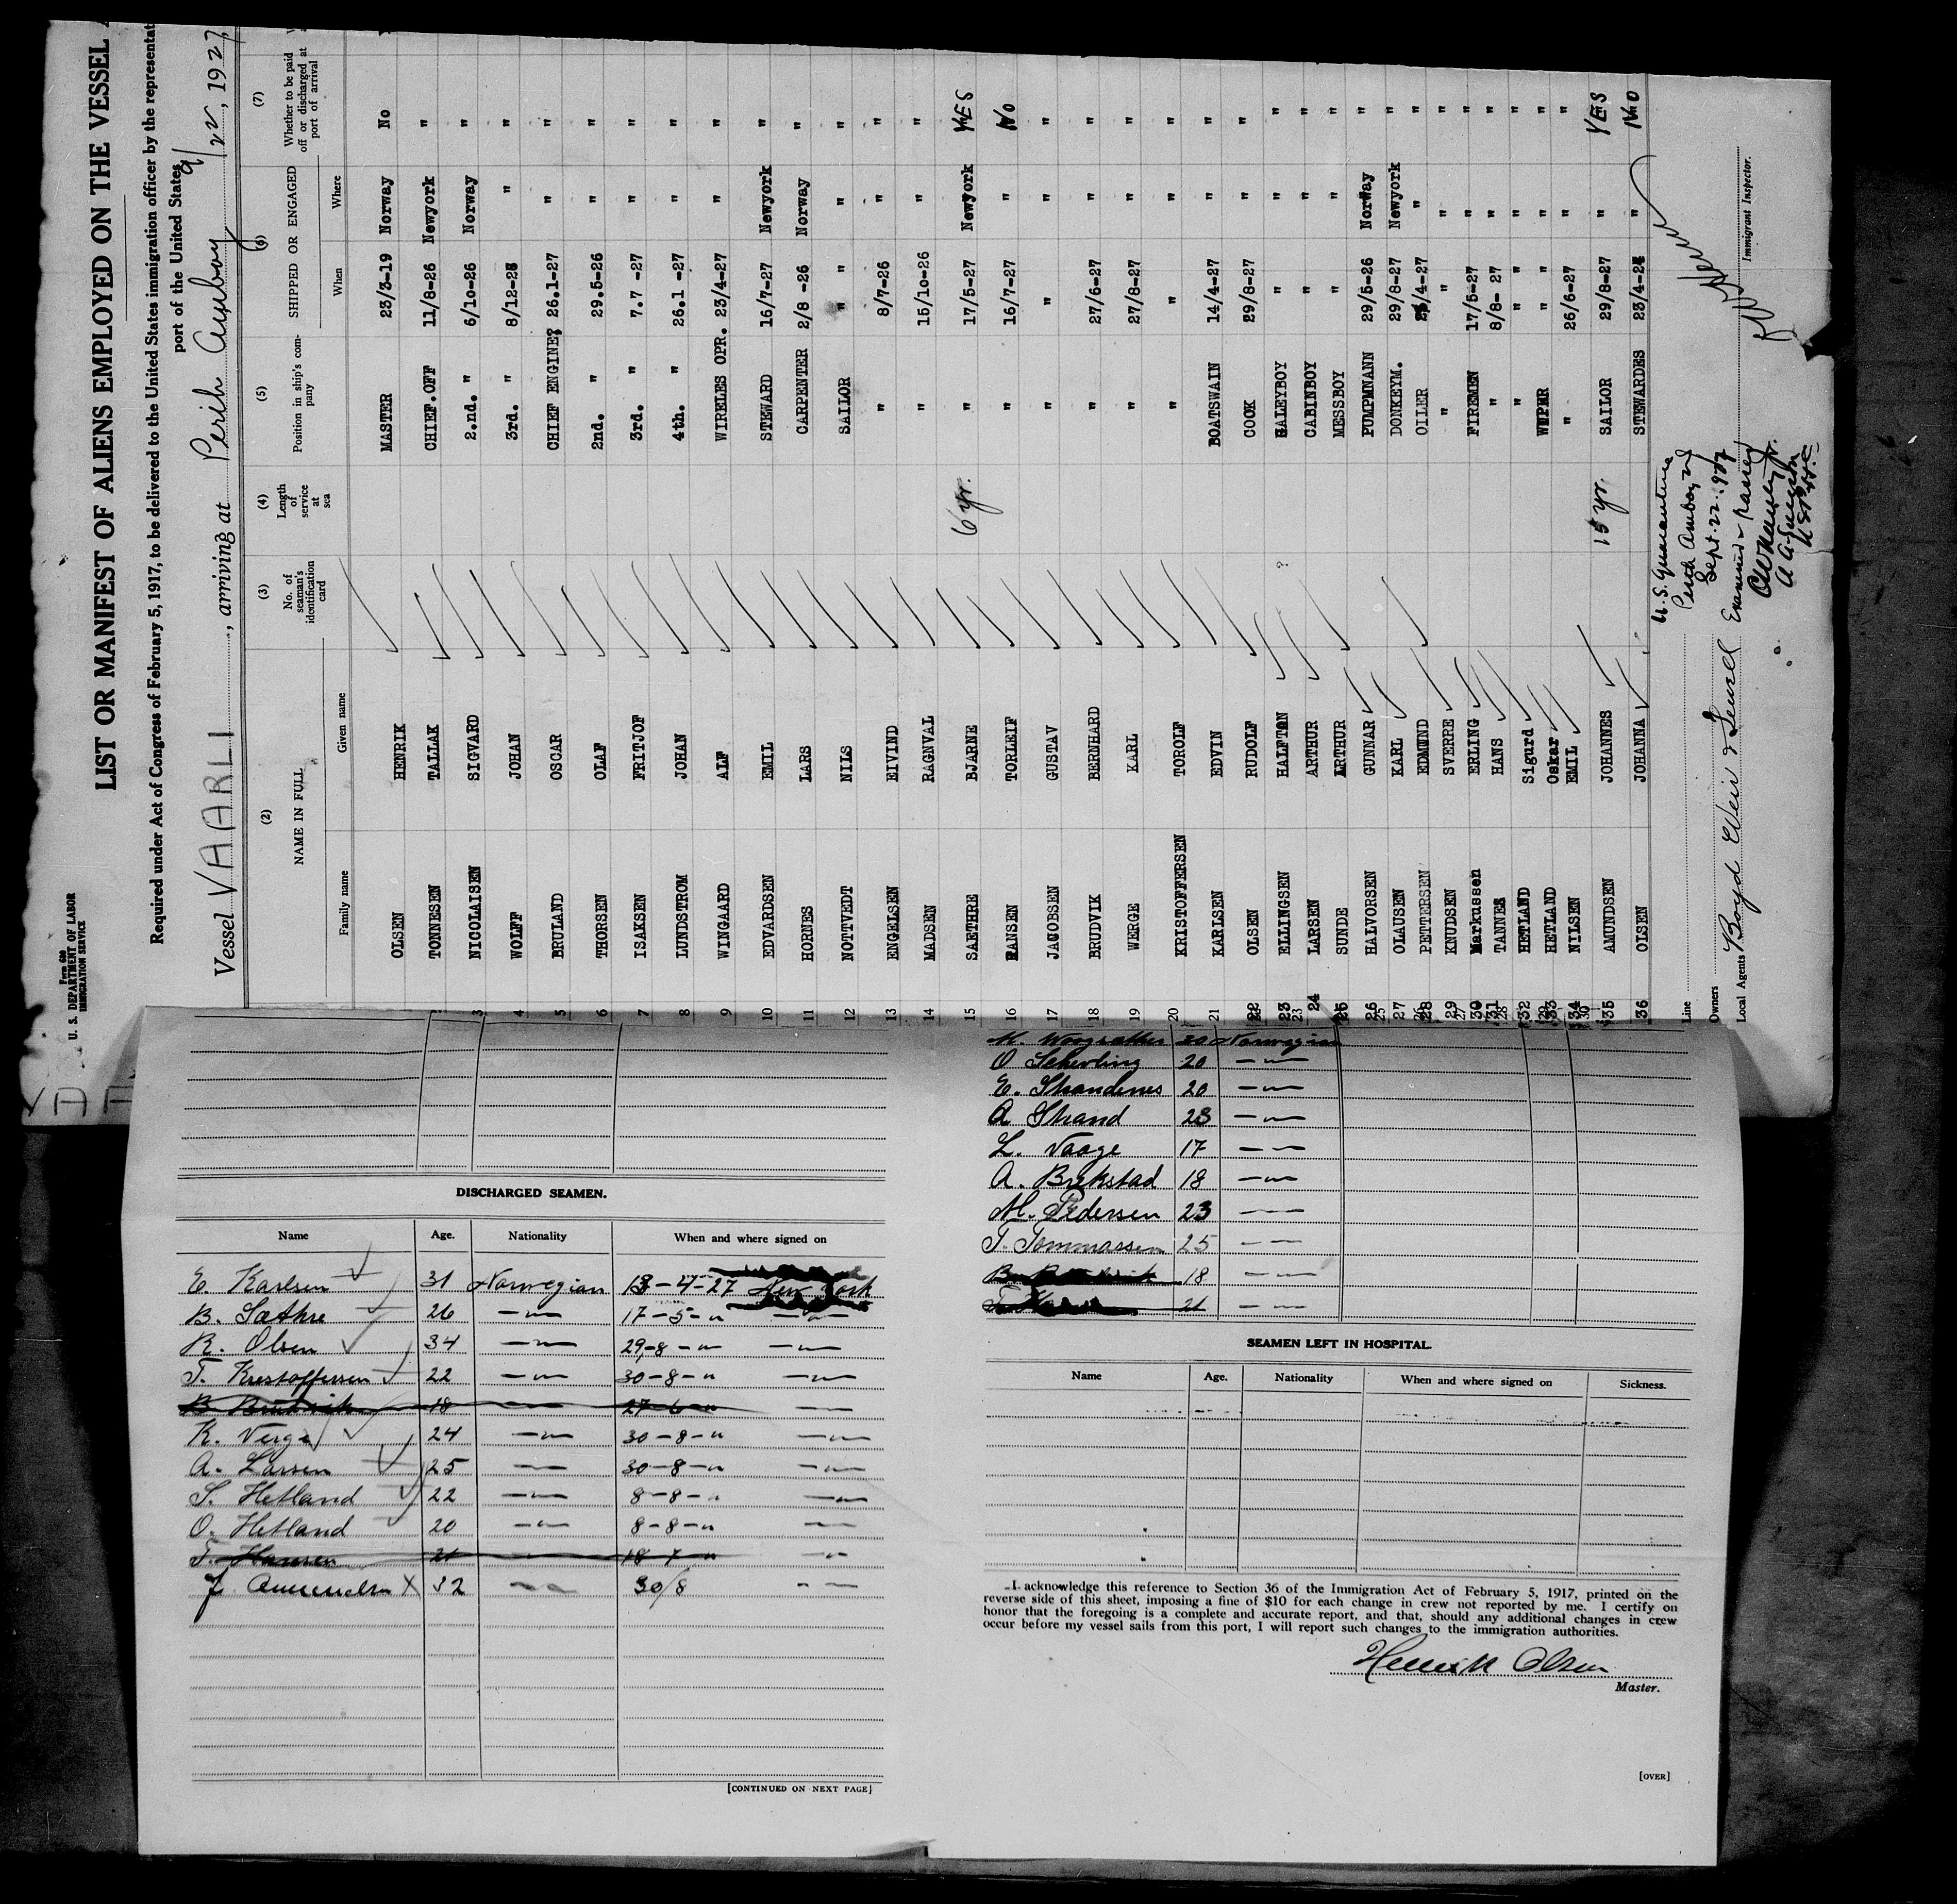 Form 680
U. S. DEPARTMENT OF LABOR
IMMIGRATION SERVICE
LIST OR MANIFEST OF ALIENS EMPLOYED ON THE VESSEL
Required under Act of Congress of February 5, 1917, to be delivered to the United States immigration officer by the representat
port of the United States
Vessel VAARLI, arriving at Perth Amboy 9/22, 1927,
(2) (3) (4) (5) (6) (7)
NAME IN FULL No. of seaman's identification card Length of service at sea Position in ship's company SHIPPED OR ENGAGED Whether to be paid off or discharged at port of arrival
Family name Given name When Where
OLSEN HENRIK MASTER 23/3-19 Norway No
TONNESEN TALLAK CHIEF.OFF 11/8-26 Newyork "
3 NICOLAISEN SIGVARD 2.nd. " 6/10-26 Norway "
4 WOLFF JOHAN 3rd. " 8/12-25 " "
5 BRULAND OSCAR CHIEF ENGINE? 26.1-27 " "
6 THORSEN OLAF 2nd. " 29.5-26 " "
7 ISAKSEN FRITJOF 3rd. " 7.7 -27 " "
8 LUNDSTROM JOHAN 4th. " 26.1 -27 " "
9 WINGAARD ALF WIRELES OPR. 23/4-27 " "
10 EDVARDSEN EMIL STEWARD 16/7-27 Newyork "
11 HORNES LARS CARPENTER 2/8 -26 Norway "
12 NOTTVEDT NILS SAILOR " " " "
13 ENGELSEN EIVIND " 8/7-26 " "
14 MADSEN RAGNVAL " 15/10-26 " "
15 SAETHRE BJARNE 6 yr. " 17/5-27 Newyork YES
16 HANSEN TORLEIF " 16/7-27 " No
17 JACOBSEN GUSTAV " " " "
18 BRUDVIK BERNHARD " 27/6-27 " "
19 WERGE KARL " 27/8-27 " "
20 KRISTOFFERSEN TOROLF " " " "
21 KARLSEN EDVIN BOATSWAIN 14/4-27 " "
22 OLSEN RUDOLF COOK 29/8-27 " "
23 ELLINGSEN HALFTON ? GALEYBOY " " "
24 LARSEN ARTHUR CABINBOY " " "
25 SUNDE ARTHUR MESSBOY " " "
26 HALVORSEN GUNNAR PUMPMNANN 29/5-26 Norway "
27 OLAUSEN KARL DONKEYM. 29/8-27 Newyork "
28 PETTERSEN EDMUND OILER 23/4-27 " "
29 KNUDSEN SVERRE " " " "
30 Markussen ERLING FIREMEN 17/5-27 " "
31 TANNER HANS " 8/8- 27 " "
32 HETLAND Sigurd " " " "
33 HETLAND Oskar WIPER " " "
34 NILSEN EMIL " 26/6-27 " "
35 AMUNDSEN JOHANNES 15 yr. SAILOR 29/8-27 " YES
36 OLSEN JOHANNA STEWARDES 23/4-24 " No
Line
Owners
Local Agents Boyd Weir & Sewell
U.S. Quarantine
Perth Amboy NJ
Sept. 22. 1927
Examined & passed
Immigrant Inspector.
DISCHARGED SEAMEN.
Name Age. Nationality When and where signed on
E. Karlsen 31 Norwegian 13-4-27 New York
B. Sathre 26 —"— 17-5-" —"—
R. Olsen 34 —"— 29-8-" —"—
T. Krestoffersen 22 —"— 30-8-" —"—
B. Brudvik 18 — 27-6-" —
K. Verge 24 —"— 30-8-" —"—
A. Larsen 25 —"— 30-8-" —"—
S. Hetland 22 —"— 8-8-" —"—
O. Hetland 20 —"— 8-8-" —"—
T. Hansen 21 — 18-7-" —"—
J. Amundsen X 32 — 30/8 — —
[CONTINUED ON NEXT PAGE]
20 Norwegian
O Scherling 20 —"—
E. Strandenes 20 —"—
A Strand 23 —"—
L. Vaage 17 —"—
A. Brekstad 18 —"—
M. Pedersen 23 — —
T. Tommassen 25 — —
18 —"—
21 — —
SEAMEN LEFT IN HOSPITAL.
Name Age. Nationality When and where signed on Sickness.
I acknowledge this reference to Section 36 of the Immigration Act of February 5, 1917, printed on the
reverse side of this sheet, imposing a fine of $10 for each change in crew not reported by me. I certify on
honor that the foregoing is a complete and accurate report, and that, should any additional changes in crew
occur before my vessel sails from this port, I will report such changes to the immigration authorities.
Henrik Olsen
Master.
[OVER]